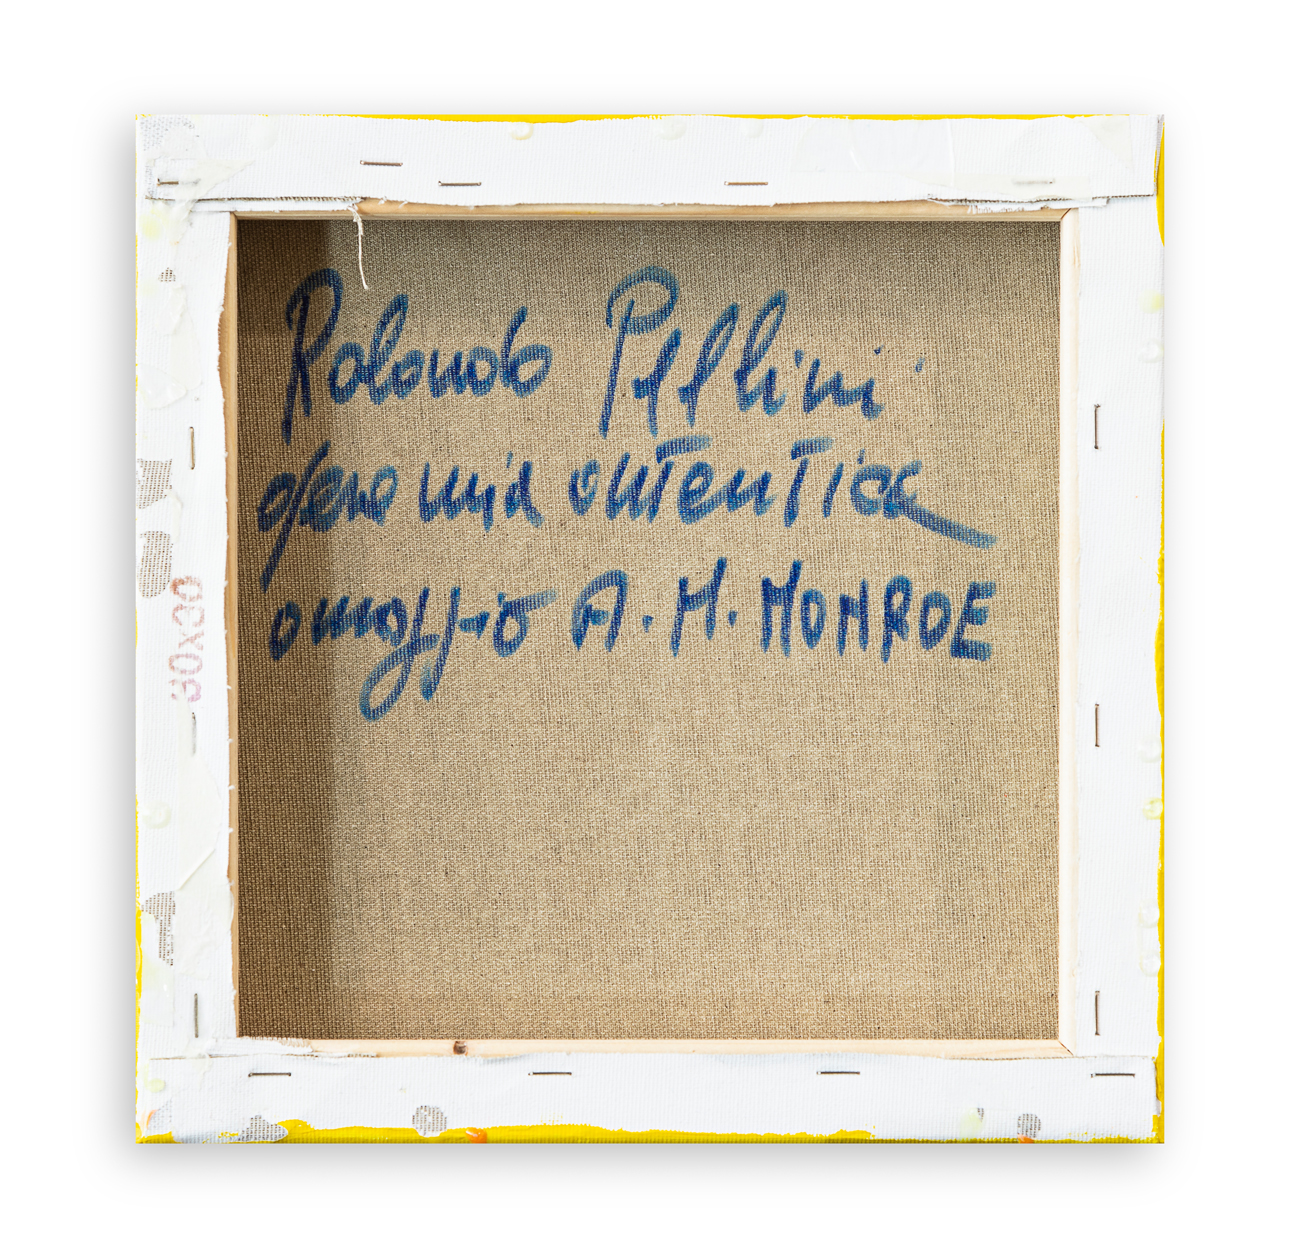 Rolando Pellini
opera mia autentica
omaggio A. M. MONROE
30x30